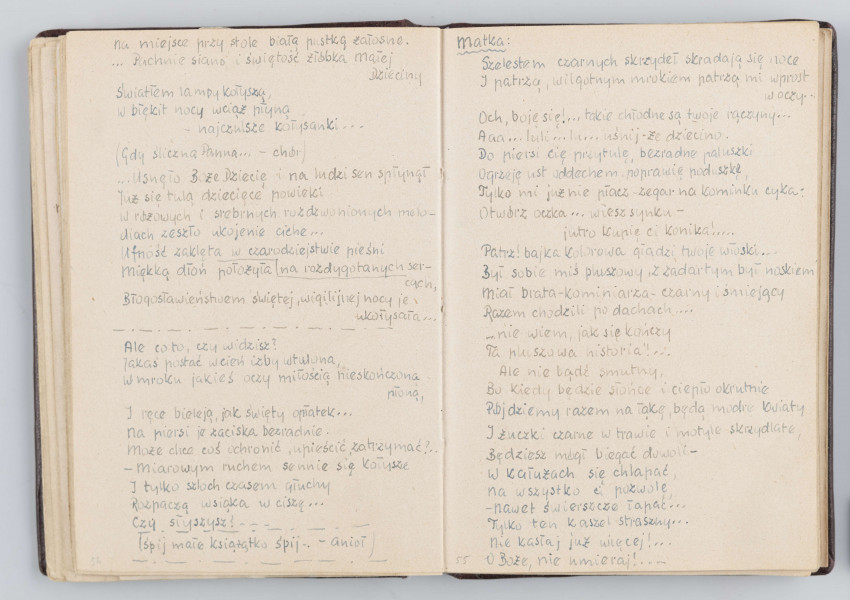 na miejsce przy stole białą pustką żałosne.
... Pachnie siano i świętość żłóbka Małej
Dzieciny
Światłem lampy kołyszą,
w błękit nocy wciąż płyną
- najczulsze kołysanki...
(Gdy śliczna Panna... - chór)
...Usnęło Boże Dziecię i na ludzi sen spłynął
Już się tulą dziecięce powieki
W różowych i srebrnych rozdzwonionych melo-
diach zeszło ukojenie ciche...
Ufność zaklęta w czarodziejstwie pieśni
Miękką dłoń położyła na rozdygotanych ser-
cach,
Błogosławieństwem świętej, wigilijnej nocy je
ukołysała...
Ale co to, czy widzisz?
Jakaś postać w cień izby wtulona,
W mroku jakieś oczy miłością nieskończoną
płoną,
I ręce bieleją, jak święty opłatek...
Na piersi je zaciska bezradnie.
Może chce coś ochronić, upieścić, zatrzymać?..
- Miarowym ruchem sennie się kołysze
I tylko szloch czasem głuchy
Rozpaczą wsiąka w ciszę...
Czy słyszysz?...
(Śpij małe książątko śpij.. - anioł)
Matka:
Szelestem czarnych skrzydeł skradają się noce
I patrzą, wilgotnym mrokiem patrzą mi wprost
w oczy..
Och, boję się!... takie chłodne są twoje rączyny...
Aaa... luli... lu... uśnij-że dziecino.
Do piersi cię przytulę, bezradne paluszki
Ogrzeję ust oddechem, poprawię poduszkę,
Tylko mi już nie płacz - zegar na kominku cyka:
Otwórz oczka... wiesz synku -
jutro kupię ci konika!....
Patrz! bajka kolorowa gładzi twoje włoski...
Był sobie miś pluszowy, z zadartym był noskiem
Miał brata - kominiarza - czarny i śmiejący
Razem chodzili po dachach....
...nie wiem, jak się kończy
Ta pluszowa historia!...
Ale nie bądź smutny,
Bo kiedy będzie słońce i ciepło okrutnie
Pójdziemy razem na łąkę, będą modre kwiaty
I żuczki czarne w trawie i motyle skrzydlate,
Będziesz mógł biegać dowoli -
W kałużach się chlapać,
na wszystko ci pozwolę,
- nawet świerszcze łapać...
Tylko ten kaszel straszny...
nie kaszlaj już więcej!...
O Boże, nie umieraj!....
55